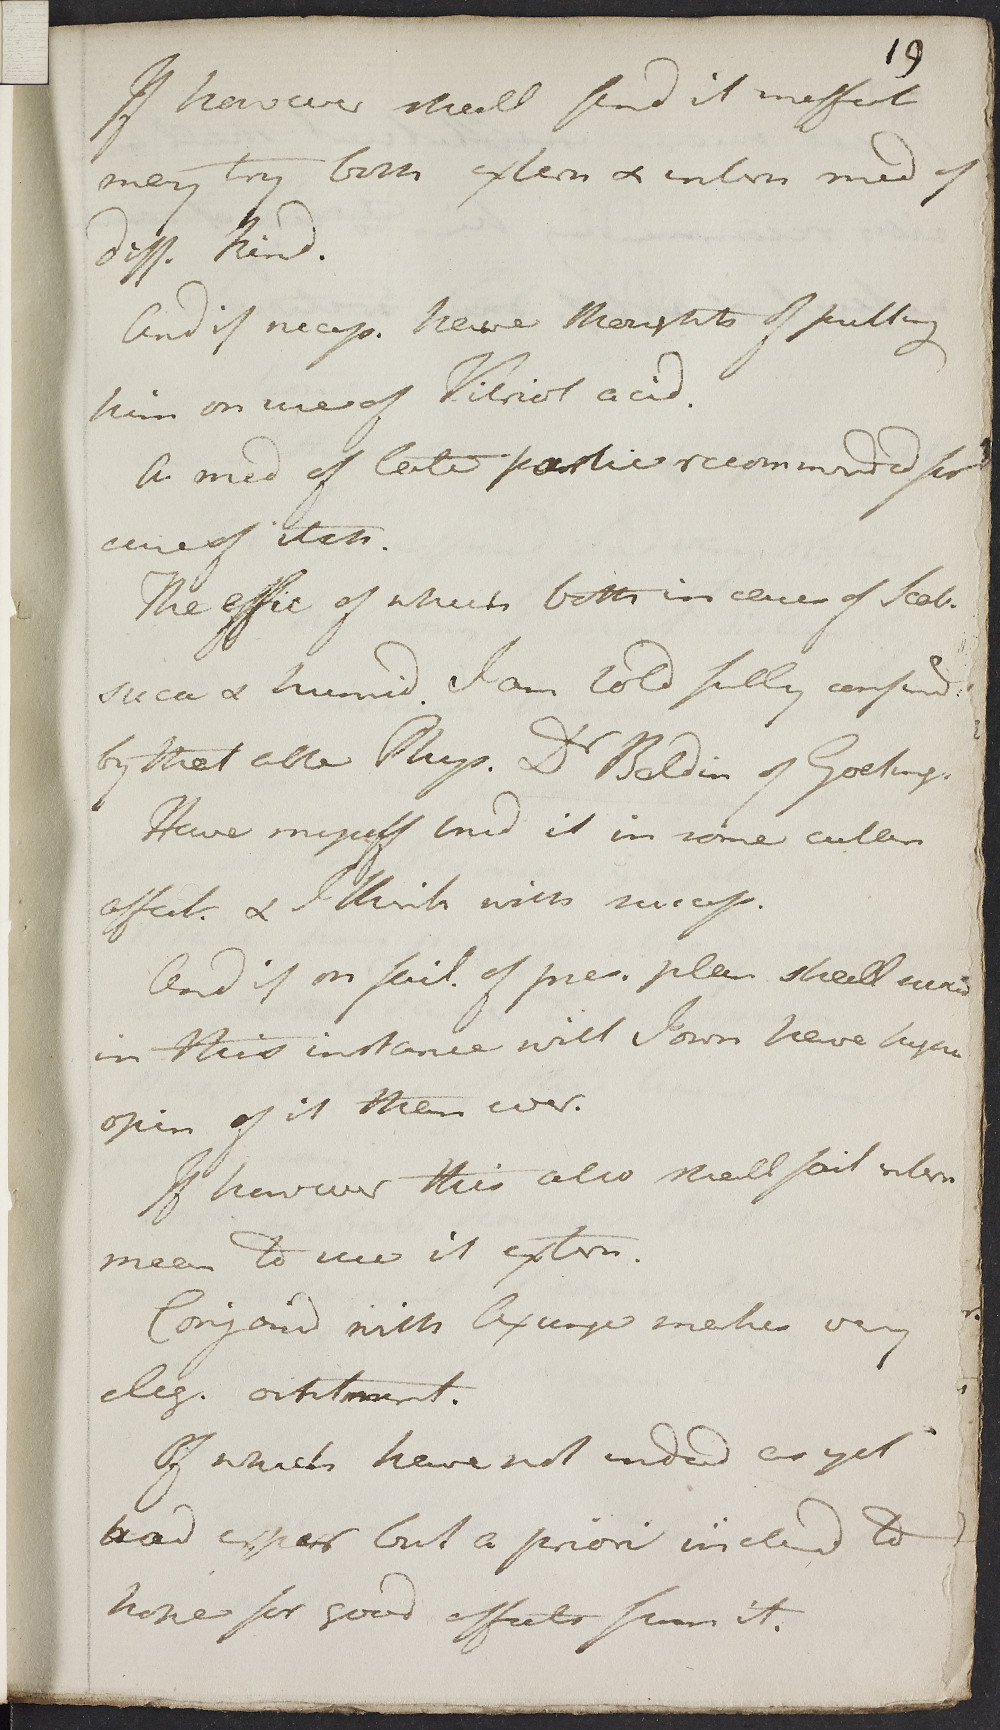 19
If however shall find it ineffect
may try both extern & intern med of
diff. kind.
And if necess. have thoughts of putting
him on use of Vitriol acid.
A med of late partic recommended for
cure of itch.
The effic of which both in cases of Scab.
sicca & humid. I am told fully confirmd
by that able Phys. Dr Baldin of Goeting.
Have myself tried it in some cutan
affect. & I think with success.
And if on fail. of pres. plan shall succd
in this instance will I own have higher
opin of it than ever.
If however this also shall fail intern
mean to use it extern.
Conjoind with Axunge makes very
eleg. ointment.
Of which have not indeed as yet
had exper but a priori inclind to
hope for good effects from it.